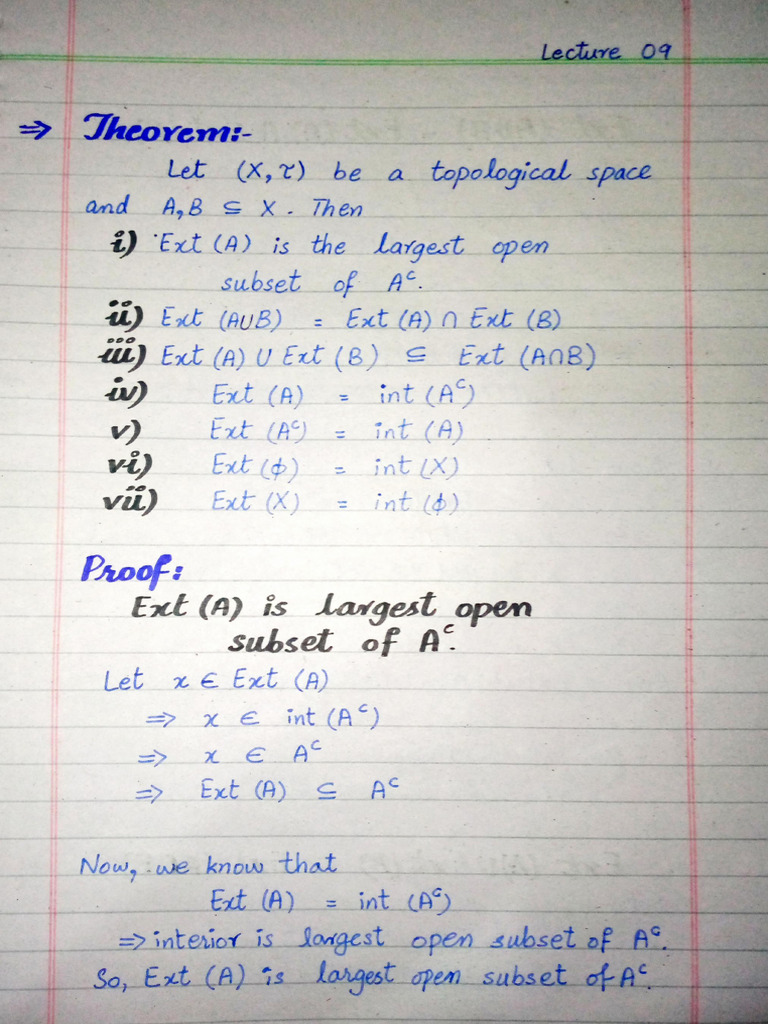 Lecture 09
⇒ Theorem:-
Let (X, τ) be a topological space
and A, B ⊆ X. Then
i) Ext (A) is the largest open
subset of Aᶜ.
ii) Ext (A∪B) = Ext (A) ∩ Ext (B)
iii) Ext (A) ∪ Ext (B) ⊆ Ext (A∩B)
iv) Ext (A) = int (Aᶜ)
v) Ext (Aᶜ) = int (A)
vi) Ext (ϕ) = int (X)
vii) Ext (X) = int (ϕ)
Proof:
Ext (A) is largest open
subset of Aᶜ.
Let x ∈ Ext (A)
⇒ x ∈ int (Aᶜ)
⇒ x ∈ Aᶜ
⇒ Ext (A) ⊆ Aᶜ
Now, we know that
Ext (A) = int (Aᶜ)
⇒ interior is largest open subset of Aᶜ.
So, Ext (A) is largest open subset of Aᶜ.